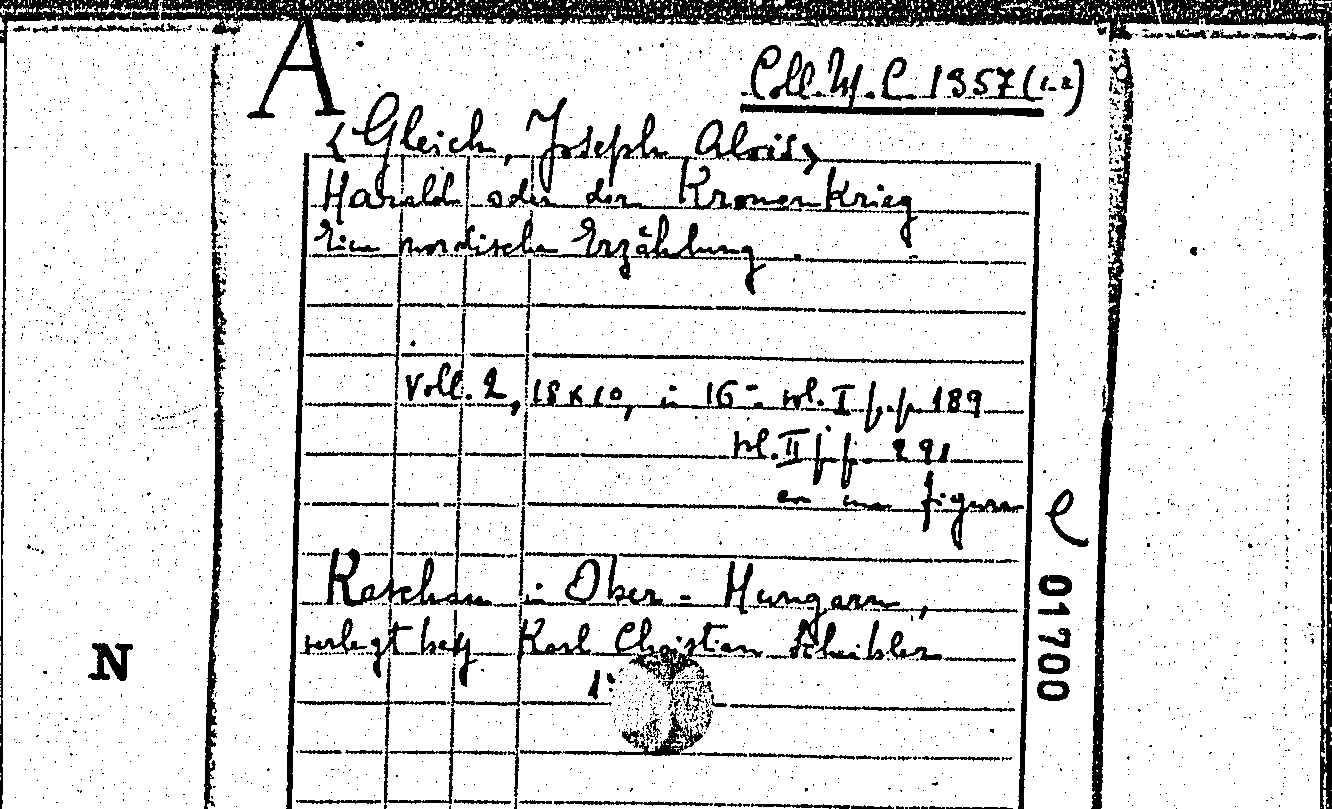 A
Coll. W. C. 1357 (1-2)
<Gleich, Joseph Alois>
Harald oder der Kronenkrieg
Eine nordische Erzählung.
voll. 2, 18 x 10, in 16° vol. I p.p. 189
vol. II p.p. 291
con una figura
e
Kaschau in Ober-Hungarn,
verlegt bey Karl Christian Scheibler
01700
N